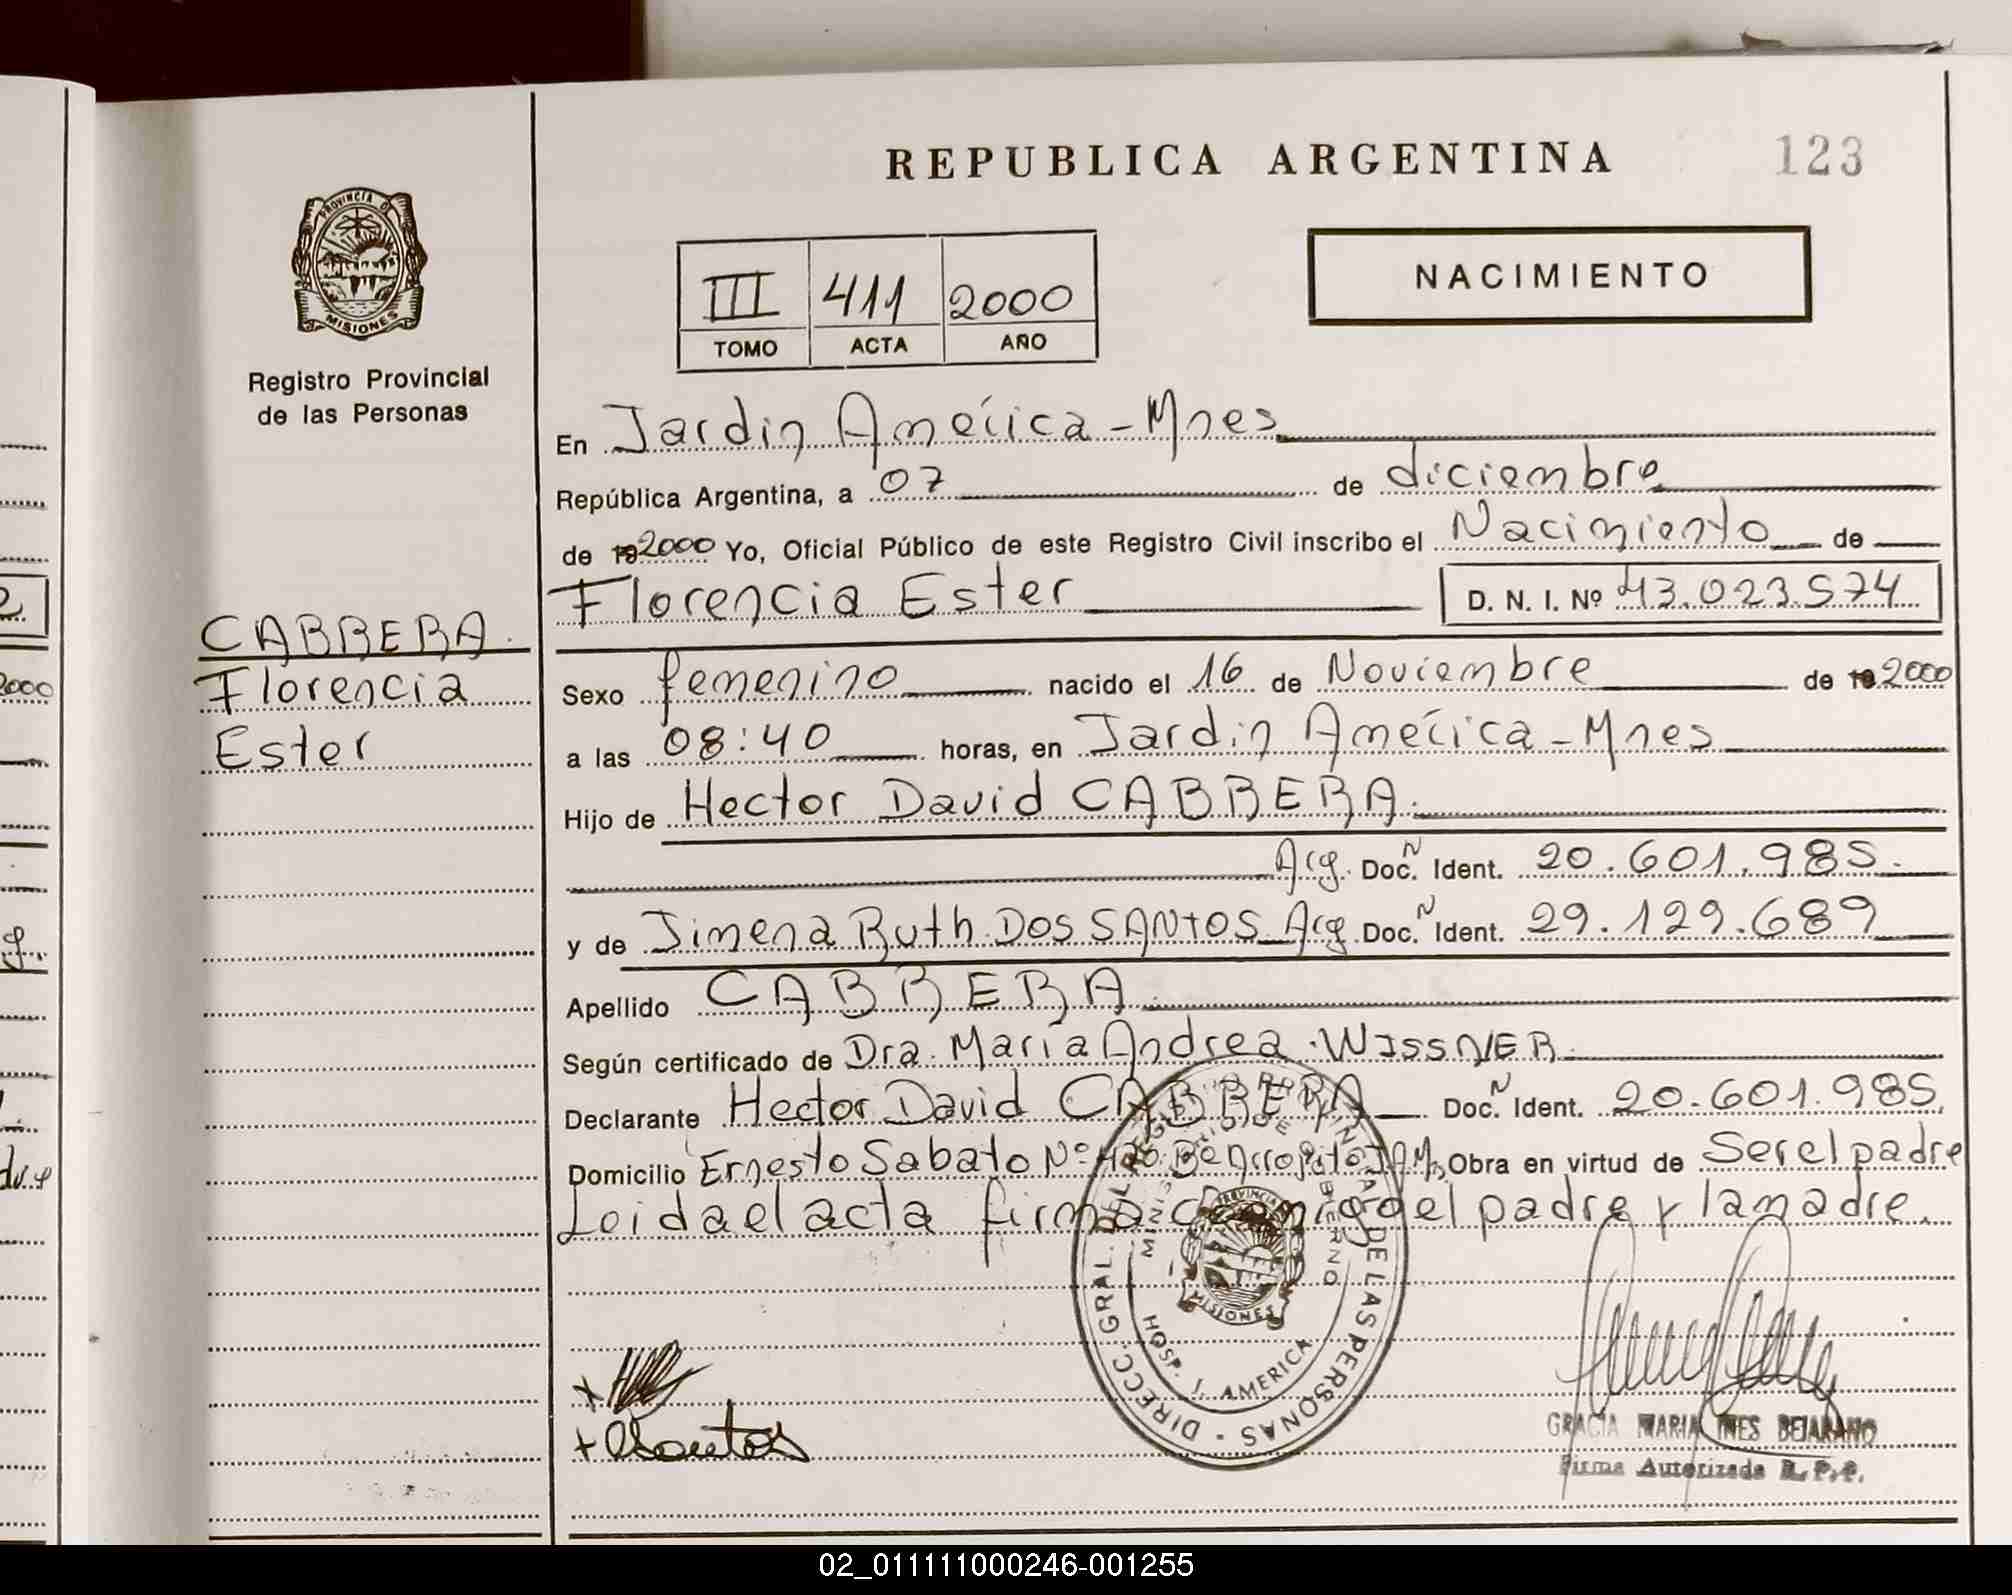 REPUBLICA ARGENTINA
123
PROVINCIA DE
MISIONES
Registro Provincial
de las Personas
III 411 2000
TOMO ACTA AÑO
NACIMIENTO
En Jardin América - Mnes
República Argentina, a 07 de diciembre
de 192000 Yo, Oficial Público de este Registro Civil inscribo el Nacimiento de
Florencia Ester D. N. I. Nº 43.023.574
CABRERA
Florencia
Ester
Sexo femenino nacido el 16 de Noviembre de 192000
a las 08:40 horas, en Jardin América - Mnes
Hijo de Hector David CABRERA.
Arg. Doc. N Ident. 20.601.985.
y de Jimena Ruth DOS SANTOS Arg. Doc. N Ident. 29.129.689
Apellido CABRERA
Según certificado de Dra. María Andrea WISSNER.
Declarante Hector David CABRERA Doc. N Ident. 20.601.985.
Domicilio Ernesto Sabato Nº Obra en virtud de Ser el padre
Leida el acta firma del padre y la madre.
DIRECC. GRAL. DEL REGISTRO PROVINCIAL DE LAS PERSONAS
MINISTERIO DE GOBIERNO
MISIONES
HOSP. J. AMERICA
+
+ Dsantos
GRACIA MARIA INES BEJARANO
Firma Autorizada R.P.P.
2000
02_011111000246-001255